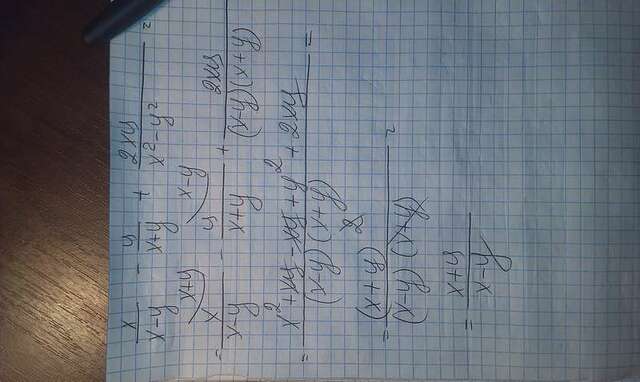 x/(x-y) - y/(x+y) + 2xy/(x²-y²) =
= x/(x-y) (x+y - y/(x+y) (x-y + 2xy/((x-y)(x+y))
= (x²+xy-xy+y²+2xy)/((x-y)(x+y)) =
= (x+y)²/((x-y)(x+y)) =
= (x+y)/(x-y)